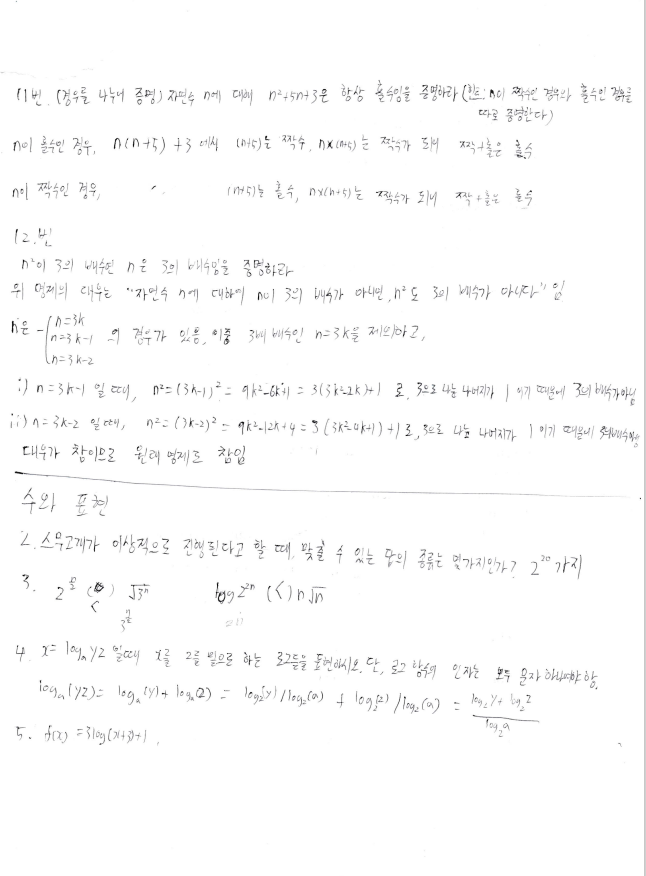 11번. (경우를 나누어 증명) 자연수 n에 대해 n²+5n+3은 항상 홀수임을 증명하라 (힌트: n이 짝수인 경우와 홀수인 경우를
따로 증명한다)
n이 홀수인 경우, n(n+5)+3 에서 (n+5)는 짝수, n×(n+5)는 짝수가 되니 짝+홀은 홀수
n이 짝수인 경우, 〃 (n+5)는 홀수, n×(n+5)는 짝수가 되니 짝+홀은 홀수
12.번
n²이 3의 배수면 n은 3의 배수임을 증명하라
위 명제의 대우는 "자연수 n에 대하여 n이 3의 배수가 아니면, n²도 3의 배수가 아니다" 임
n은 n=3k
n=3k-1 의 경우가 있음, 이중 3배 배수인 n=3k을 제외하고,
n=3k-2
i) n=3k-1 일 때, n²=(3k-1)²=9k²-6k+1=3(3k²-2k)+1 로, 3으로 나눈 나머지가 1 이기 때문에 3의 배수가 아님
ii) n=3k-2 일 때, n²=(3k-2)²=9k²-12k+4=3(3k²-4k+1)+1 로, 3으로 나눈 나머지가 1 이기 때문에
대우가 참이므로 원래 명제도 참임
수와 표현
2. 스무고개가 이상적으로 진행된다고 할 때, 맞출 수 있는 답의 종류는 몇가지인가? 2²⁰ 가지
3. 2^(n/2) ( ) √3ⁿ log2²ⁿ (<) n√n
<
3^(n/2)
4. x=logₐyz 일때 x를 2를 밑으로 하는 로그들을 표현하시오. 단, 로그 함수의 인자는 모두 문자 하나여야 함.
logₐ(yz)=logₐ(y)+logₐ(z)=log₂(y)/log₂(a)+log₂(z)/log₂(a)=(log₂y+log₂z)/log₂a
5. f(x)=3log(x+3)+1,